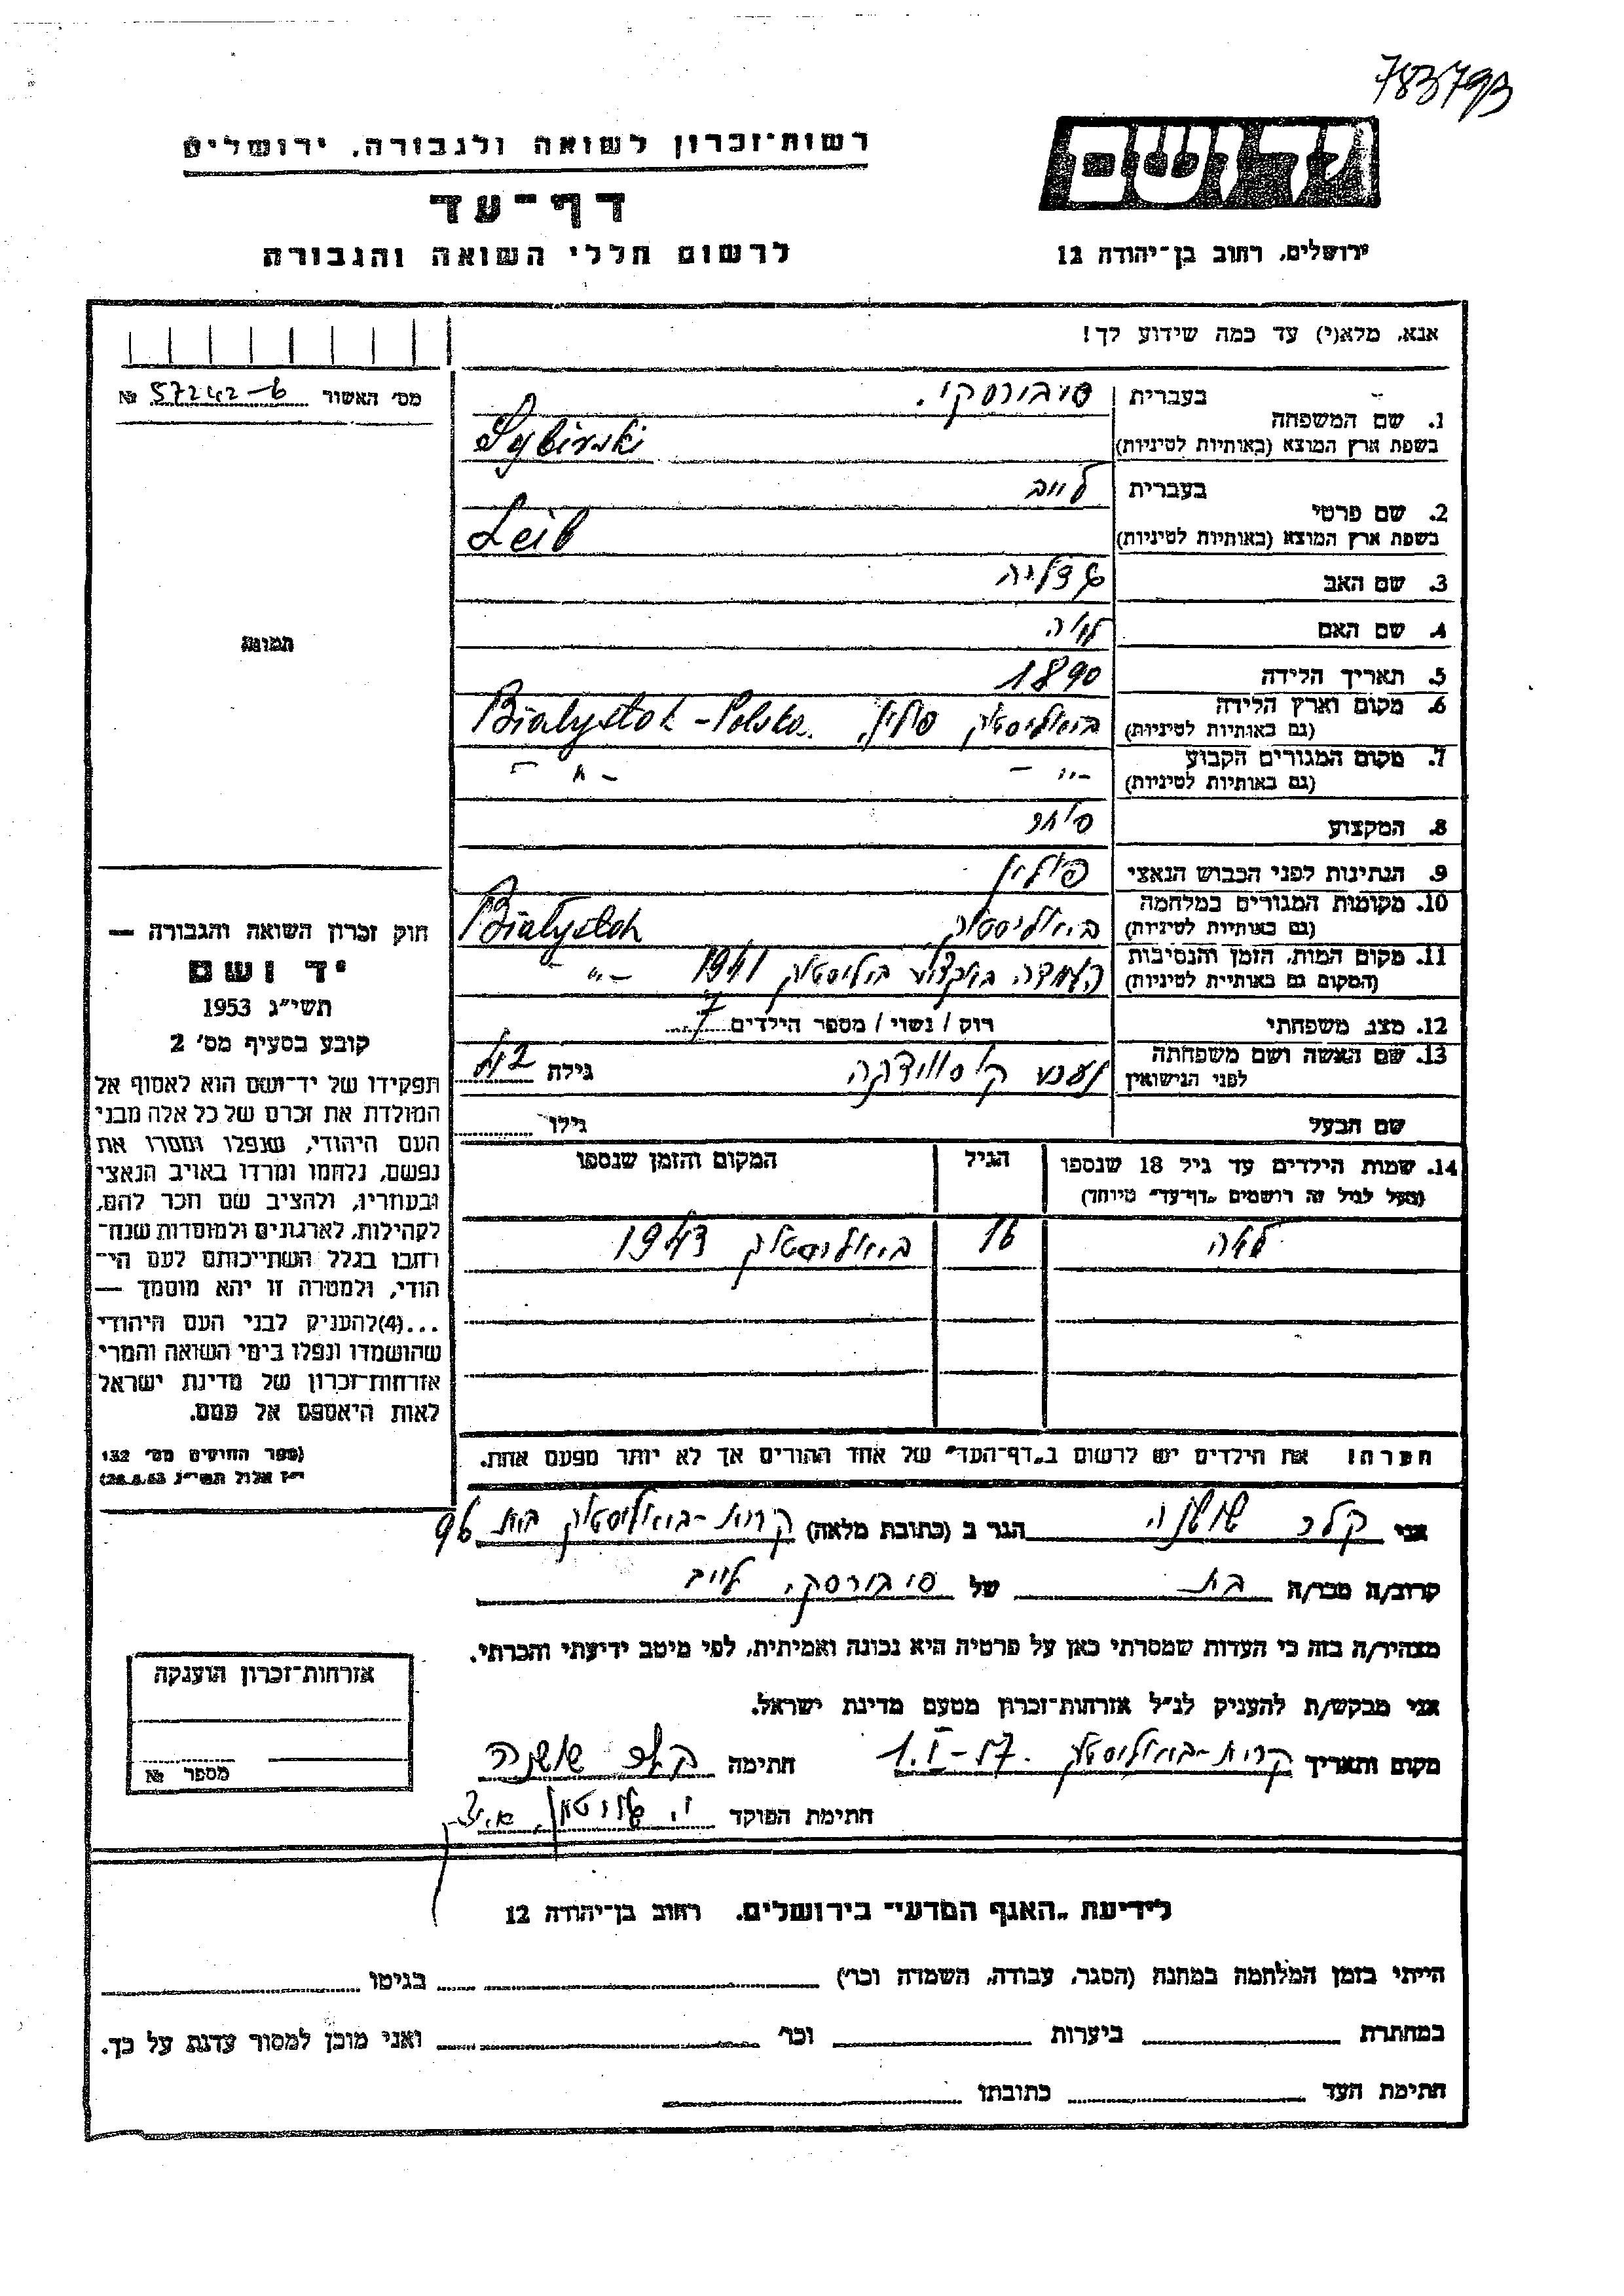 783793
רשות־זכרון לשואה ולגבורה, ירושלים
דף־עד
לרשום חללי השואה והגבורה
יד ושם
ירושלים, רחוב בן־יהודה 12
אנא, מלא(י) עד כמה שידוע לך!
מס׳ האשור 57242-б №
1. שם המשפחה בעברית סיבורסקי.
בשפת ארץ המוצא (באותיות לטיניות)
2. שם פרטי בעברית לייב
בשפת ארץ המוצא (באותיות לטיניות) Leib
3. שם האב גדליה
4. שם האם
5. תאריך הלידה 1890
6. מקום וארץ הלידה (גם באותיות לטיניות) ביאליסטוק פולין. Białystok - Polska
7. מקום המגורים הקבוע (גם באותיות לטיניות) -"- -"-
8. המקצוע סוחר
9. הנתינות לפני הכבוש הנאצי פולין
10. מקומות המגורים במלחמה (גם באותיות לטיניות) ביאליסטוק Białystok
11. מקום המות, הזמן והנסיבות (המקום גם באותיית לטיניות) ביאליסטוק 1941 -"-
12. מצב משפחתי רוק / נשוי / מספר הילדים 7
13. שם האשה ושם משפחתה לפני הנישואין גילה 42
שם הבעל גילו
14. שמות הילדים עד גיל 18 שנספו הגיל המקום והזמן שנספו
(מעל לגיל זה רושמים „דף־עד״ מיוחד)
16 ביאליסטוק 1943
הערה: את הילדים יש לרשום ב„דף־העד״ של אחד ההורים אך לא יותר מפעם אחת.
תמונה
חוק זכרון השואה והגבורה —
יד ושם
תשי״ג 1953
קובע בסעיף מס׳ 2
תפקידו של יד־ושם הוא לאסוף אל
המולדת את זכרם של כל אלה מבני
העם היהודי, שנפלו ומסרו את
נפשם, נלחמו ומרדו באויב הנאצי
ובעוזריו, ולהציב שם וזכר להם,
לקהילות, לארגונים ולמוסדות שנח־
רבו בגלל השתייכותם לעם הי־
הודי, ולמטרה זו יהא מוסמך —
...(4)להעניק לבני העם היהודי
שהושמדו ונפלו בימי השואה והמרי
אזרחות־זכרון של מדינת ישראל
לאות היאספם אל עמם.
(ספר החוקים מס׳ 132
י״ז אלול תשי״ג 28.8.53)
אני קלר שושנה הגר ב (כתובת מלאה) קרית-ביאליסטוק בית 96
קרוב/ה מכר/ה בת של סיבורסקי לייב
מצהיר/ה בזה כי העדות שמסרתי כאן על פרטיה היא נכונה ואמיתית, לפי מיטב ידיעתי והכרתי.
אני מבקש/ת להעניק לנ״ל אזרחות־זכרון מטעם מדינת ישראל.
מקום ותאריך קרית-ביאליסטוק 1.I-57 חתימה קלר שושנה
חתימת הפוקד
אזרחות־זכרון הוענקה
מספר №
לידיעת „האגף המדעי״ בירושלים, רחוב בן־יהודה 12
הייתי בזמן המלחמה במחנה (הסגר, עבודה, השמדה וכו׳) בגיטו
במחתרת ביערות וכו׳ ואני מוכן למסור עדות על כך.
חתימת העד כתובתו